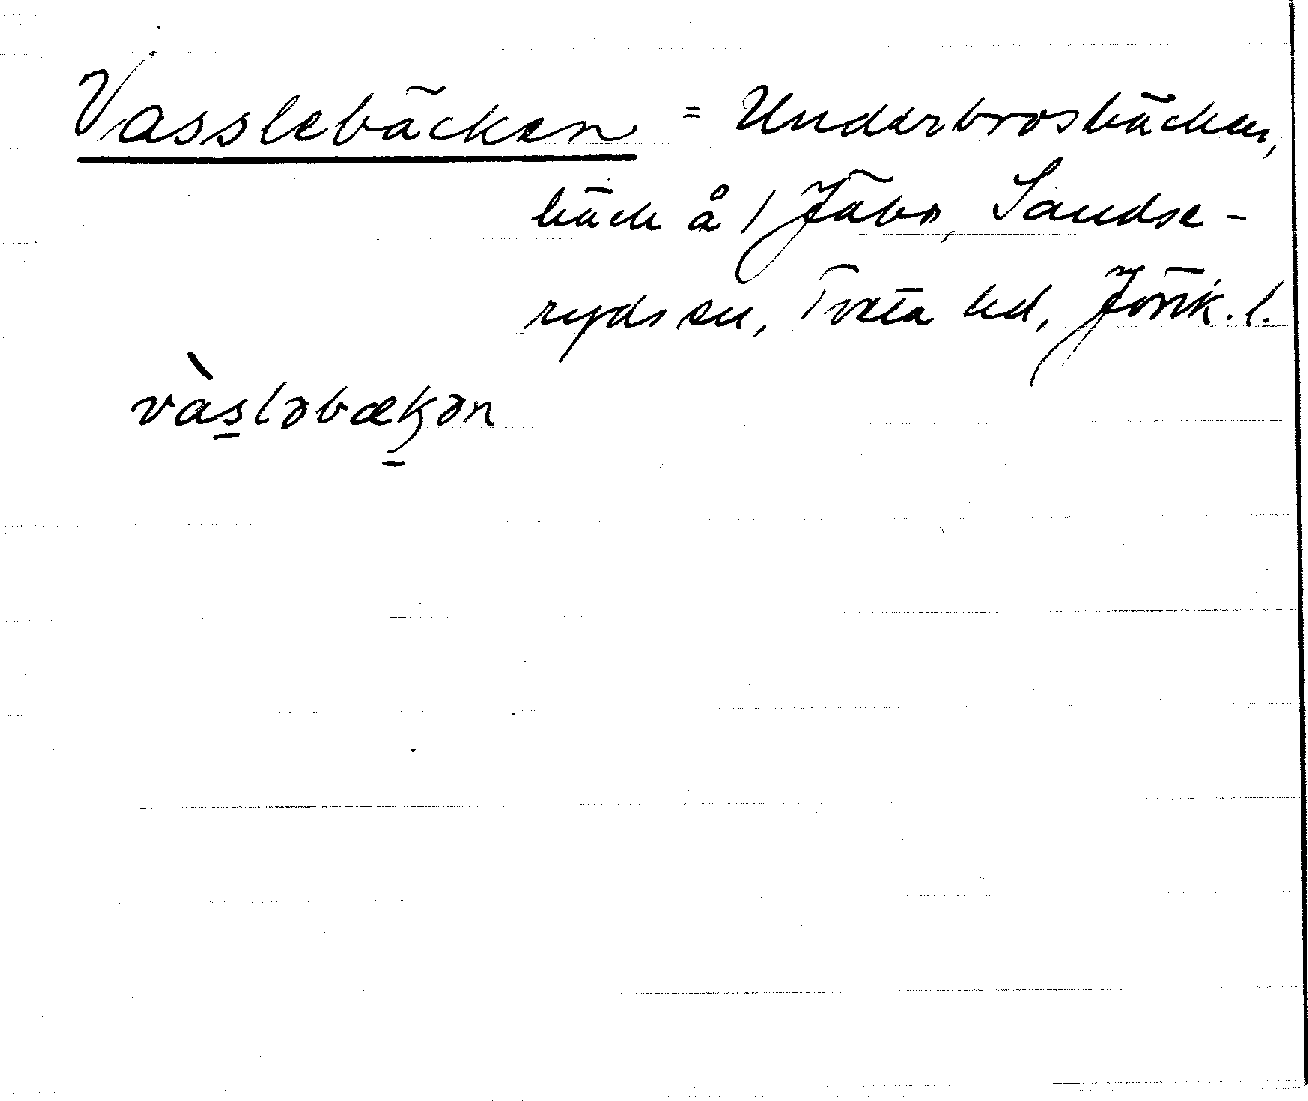 Vasslebäcken = Underbrosbäcken,
bäck å 1 Jäbo, Sandse-
ryds sn, Tveta hd, Jönk. l.
vàsləbækən